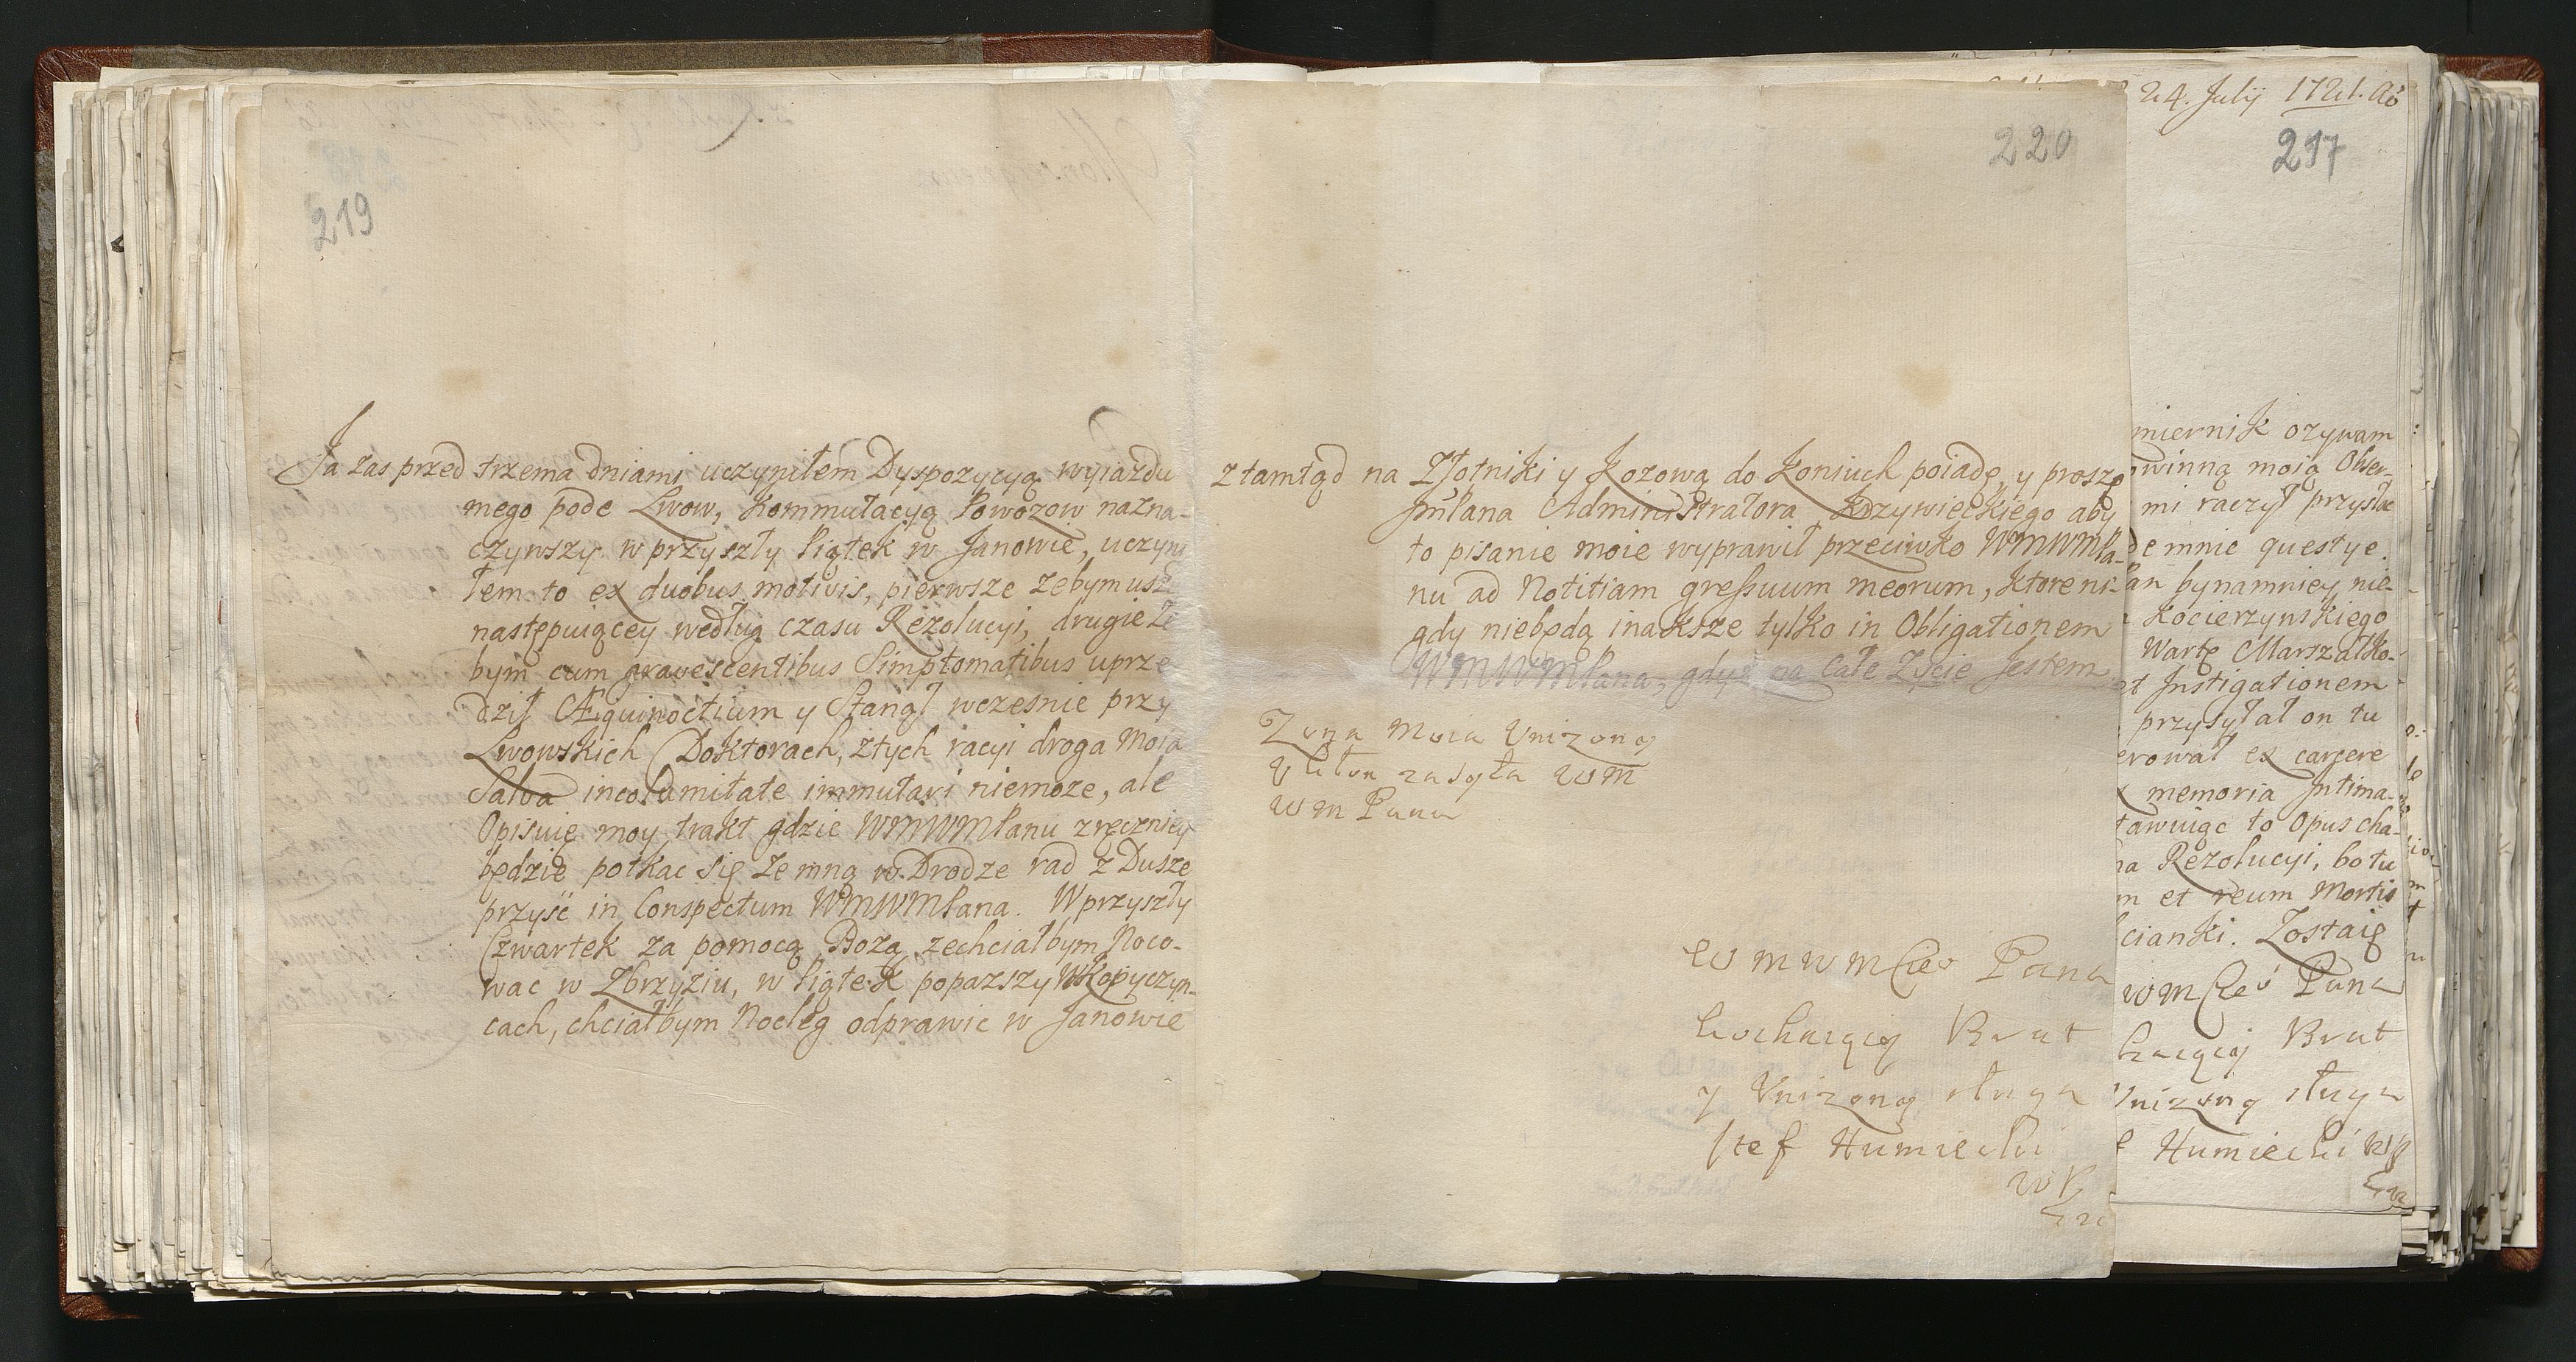 219
Ja zas przed trzema dniami uczyniłem Dyspozycyą wyiazdu
mego pode Lwow, Kommutacyą Powozow nazna-
czywszy w przyszły Piątek w Janowie, uczyni
łem to ex duobus motivis, pierwsze zebym usz
następuiącey według czasu Rezolucyi, drugie ze
bym cum gravescentibus Simptomatibus uprze
dził Æquinoctium y Stanął wczesnie przy
Lwowskich Doktorach, z tych racyi droga moia
Salva incolumitate immutari niemoze, ale
Opisuię moy trakt gdzie WMWMPanu zręczniey
będzie potkac się ze mną w Drodze rad z Dusze
przyść in Conspectum WMWMPana. W przyszły
Czwartek za pomocą Bozą zechciałbym Noco-
wac w Zbrzyziu, w Piątek popazszy w Kopyczyn-
cach, chciałbym Nocleg odprawic w Janowie
220
z tamtąd na Złotniki y Kozową do Koniuch poiadę, y proszę
JmPana Administratora Krzywieckiego aby
to pisanie moie wyprawił przeciwko WMWMPa-
nu ad Notitiam gressuum meorum, ktore ni-
gdy niebędą inaksze tylko in Obligationem
WMWMPana, gdyż na całe Zycie Jestem
Zona Moia Unizony
Ukłon zasyła WM
WM Pana
WMWMCiego Pana
kochaiący Brat
y Unizony sługa
Stef Humiecki
WP
24. Julij 1721. Ao
217
miernik ozywam
winną moią Obser-
mi raczył przysłac
de mnie questye.
an bynamniey nie-
Kocierzynskiego
Wartę Marszałko-
et Instigationem
przysyłał on tu
erował ex carcere
memoria Intima-
tawuiąc to Opus cha-
na Rezolucyi, bo tu
m et reum Mortis
cianki. Zostaię
WMCiego Pana
haiący Brat
Unizony sługa
f Humiecki WP